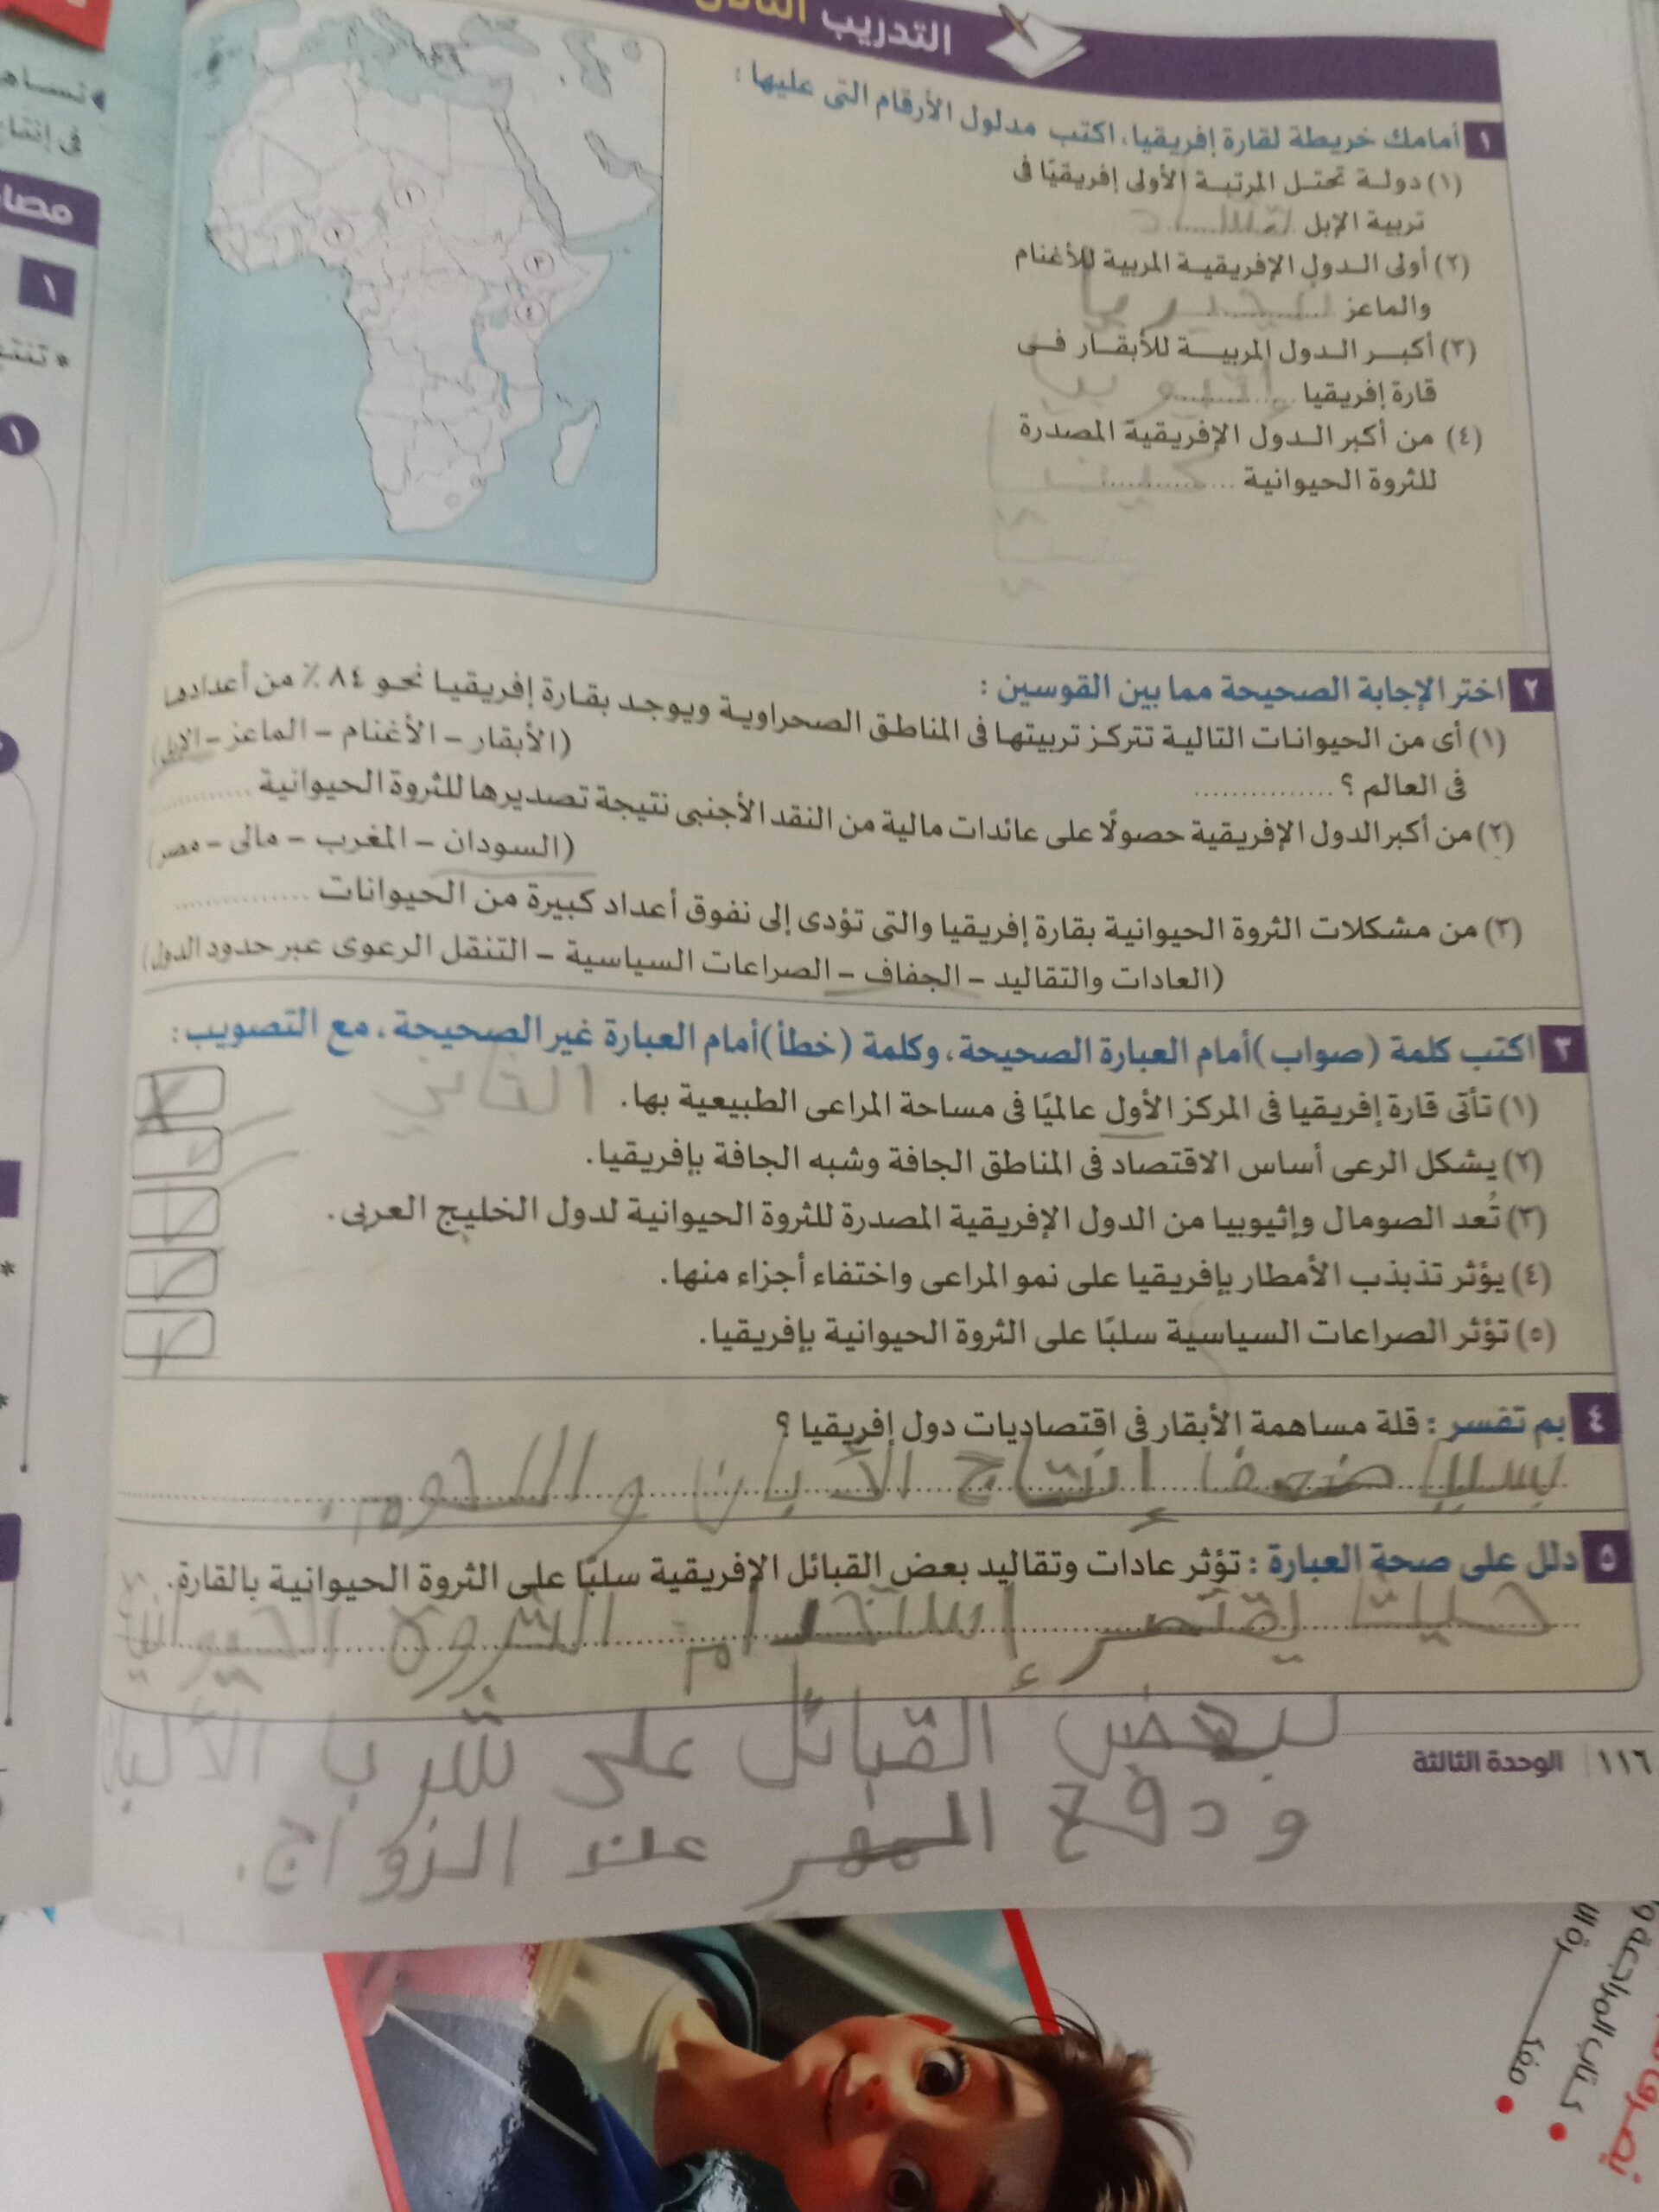 التدريب
١ أمامك خريطة لقارة إفريقيا، اكتب مدلول الأرقام التى عليها :
(١) دولة تحتل المرتبة الأولى إفريقيًا فى
تربية الإبل تشاد
(٢) أولى الدول الإفريقية المربية للأغنام
والماعز نيجيريا
(٣) أكبر الدول المربية للأبقار فى
قارة إفريقيا إثيوبيا
(٤) من أكبر الدول الإفريقية المصدرة
للثروة الحيوانية كينيا
١
٢
٣
٤
٢ اختر الإجابة الصحيحة مما بين القوسين :
(١) أى من الحيوانات التالية تتركز تربيتها فى المناطق الصحراوية ويوجد بقارة إفريقيا نحو ٨٤ ٪ من أعدادها
فى العالم ؟ ............... (الأبقار – الأغنام – الماعز – الإبل)
(٢) من أكبر الدول الإفريقية حصولًا على عائدات مالية من النقد الأجنبى نتيجة تصديرها للثروة الحيوانية ...............
(السودان – المغرب – مالى – مصر)
(٣) من مشكلات الثروة الحيوانية بقارة إفريقيا والتى تؤدى إلى نفوق أعداد كبيرة من الحيوانات ...............
(العادات والتقاليد – الجفاف – الصراعات السياسية – التنقل الرعوى عبر حدود الدول)
٣ اكتب كلمة (صواب) أمام العبارة الصحيحة، وكلمة (خطأ) أمام العبارة غير الصحيحة، مع التصويب :
(١) تأتى قارة إفريقيا فى المركز الأول عالميًا فى مساحة المراعى الطبيعية بها. الثاني
(٢) يشكل الرعى أساس الاقتصاد فى المناطق الجافة وشبه الجافة بإفريقيا.
(٣) تُعد الصومال وإثيوبيا من الدول الإفريقية المصدرة للثروة الحيوانية لدول الخليج العربى.
(٤) يؤثر تذبذب الأمطار بإفريقيا على نمو المراعى واختفاء أجزاء منها.
(٥) تؤثر الصراعات السياسية سلبًا على الثروة الحيوانية بإفريقيا.
٤ بم تفسر : قلة مساهمة الأبقار فى اقتصاديات دول إفريقيا ؟
إنتاج الألبان واللحوم.
٥ دلل على صحة العبارة : تؤثر عادات وتقاليد بعض القبائل الإفريقية سلبًا على الثروة الحيوانية بالقارة.
يقتصر إستخدام الثروة الحيوانية
لبعض القبائل على شرب الألبان
ودفع المهر عند الزواج.
١١٦ | الوحدة الثالثة
فى إنتا
مصا
١
١
* تنتـ